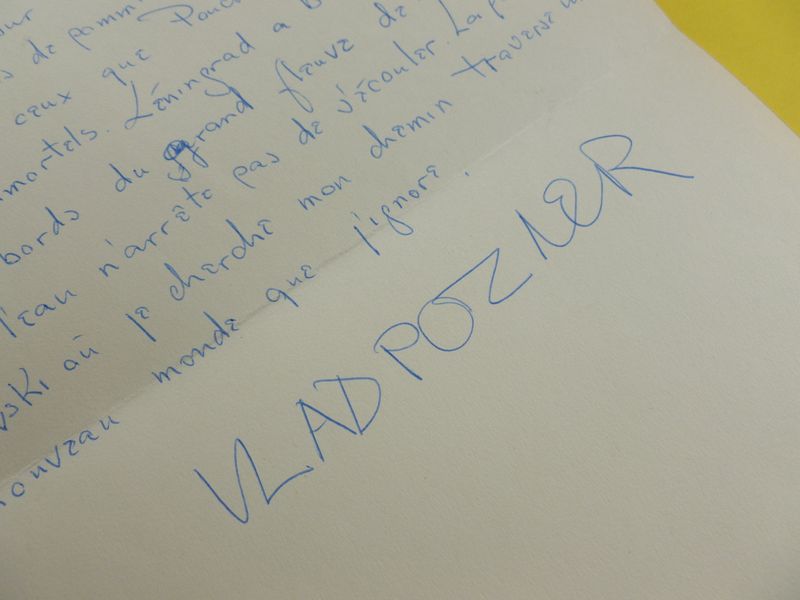 our
de pommi
ceux que Pouc
mortels. Léningrad a B
bords du grand fleuve de
l'eau n'arrête pas de s'écouler. La p
vski où je cherche mon chemin traverse un
nouveau monde que j'ignore.
VLAD POZNER